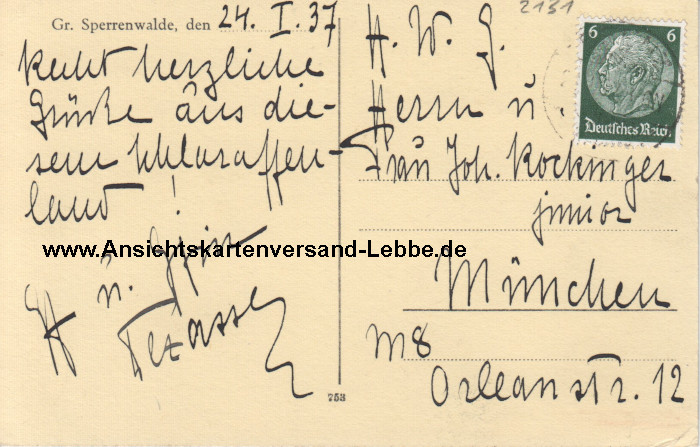 Gr. Sperrenwalde, den 24. I. 37
Recht herzliche
Grüße aus die-
sem Schlaraffen-
land!
u.
2131
H. W. G.
Herrn u.
Frau Joh. Rockinger
junior
München
M 8
Orleanstr. 12
6 6
Deutsches Reich
www.Ansichtskartenversand-Lebbe.de
753